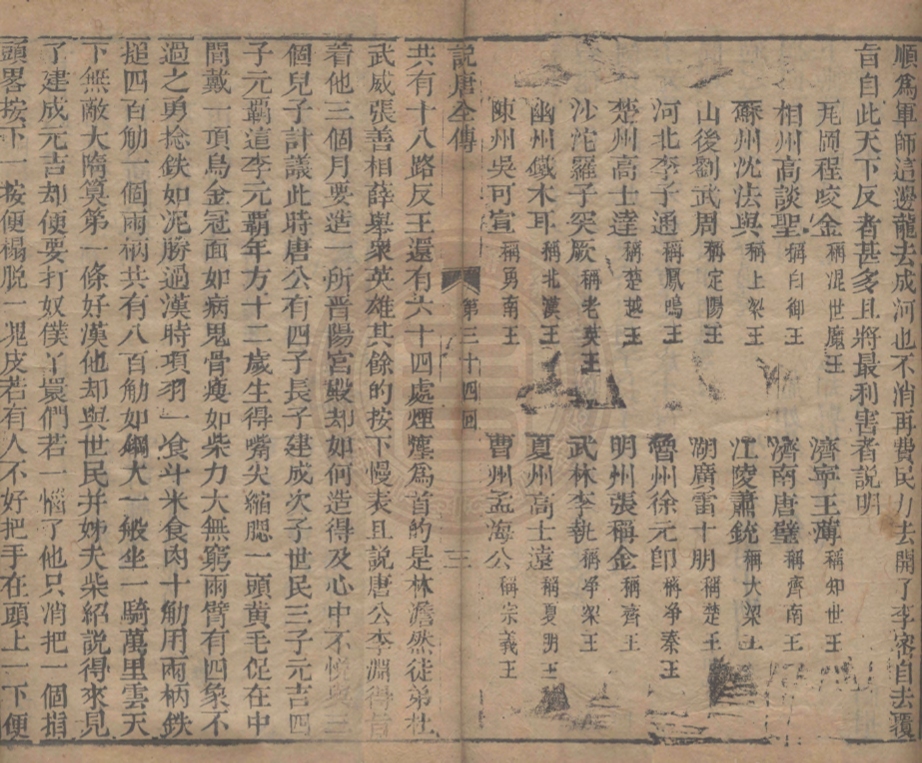 順爲軍師這邊龍去成河也不消再費民力去開了李密自去覆
旨自此天下反者甚多且將最利害者説明
瓦崗程咬金稱混世魔王
濟寧王薄稱知世王
相州高談聖稱白御王
濟南唐璧稱齊南王
蘇州沈法興稱上梁王
江陵蕭銑稱大梁王
山後劉武周稱定陽王
湖廣雷十朋稱楚王
河北李子通稱鳳鳴王
魯州徐元郎稱净秦王
楚州高士逹稱楚越王
明州張稱金稱齊王
沙陀羅子突厥稱老英王
武林李執稱净梁王
幽州鐵木耳稱北漢王
夏州高士遠稱夏明王
陳州吳可宣稱勇南王
曹州孟海公稱宗義王
説唐全傳
第三十四囘
三
共有十八路反王還有六十四處煙塵爲首的是林澹然徒弟杜
武威張善相薛舉衆英雄其餘的按下慢表且説唐公李淵得旨
着他三個月要造一所晋陽宮殿却如何造得及心中不悦與三
個兒子計議此時唐公有四子長子建成次子世民三子元吉四
子元覇這李元覇年方十二歲生得嘴尖縮腮一頭黄毛促在中
間戴一頂烏金冠面如病鬼骨瘦如柴力大無窮兩臂有四象不
過之勇捻鉄如泥勝過漢時項羽一食斗米食肉十觔用兩柄鉄
搥四百觔一個兩柄共有八百觔如鋼大一般坐一騎萬里雲天
下無敵大隋算第一條好漢他却與世民并姊夫柴紹説得來見
了建成元吉却便要打奴僕丫環們若一惱了他只消把一個指
頭畧按下一按便搨脱一塊皮若有人不好把手在頭上一下便